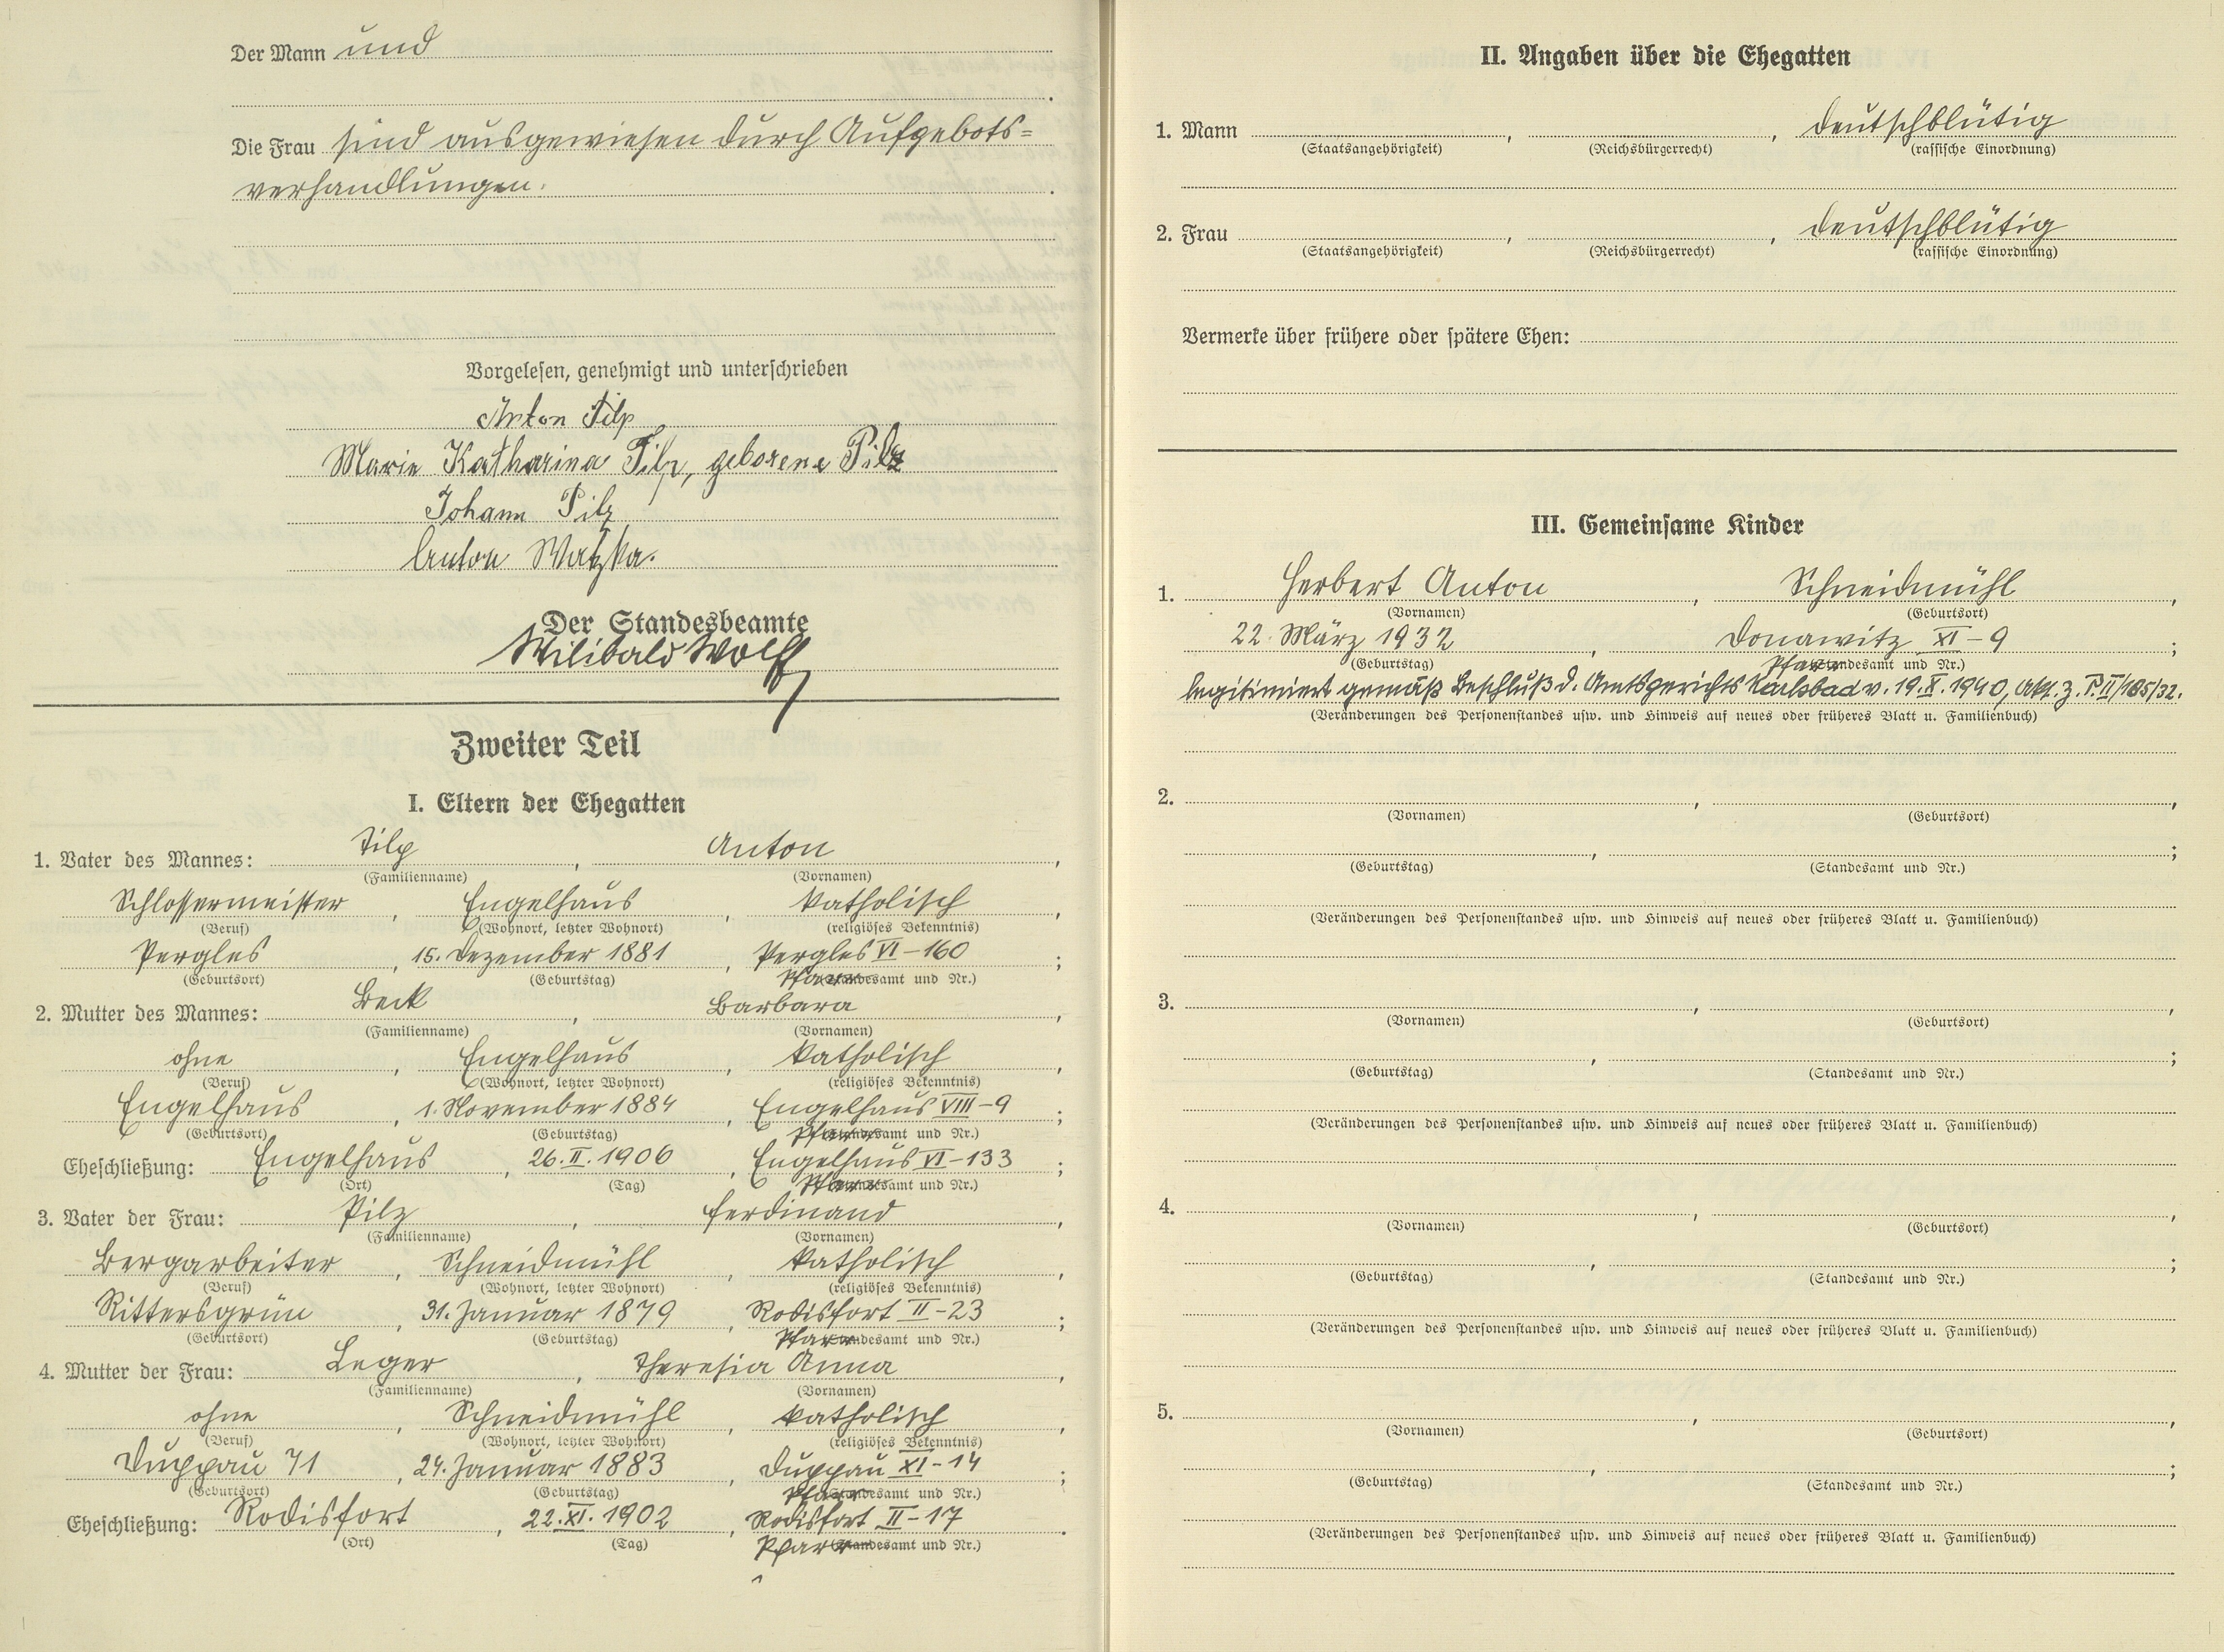 Der Mann und
Die Frau sind ausgewiesen durch Aufgebots=
verhandlungen.
Vorgelesen, genehmigt und unterschrieben
Anton Tilp
Marie Katharina Tilp, geborene Pilz
Johann Pilz
Anton Watzka.
Der Standesbeamte
Wilibald Wolf
Zweiter Teil
I. Eltern der Ehegatten
1. Vater des Mannes: Tilp, Anton,
(Familienname) (Vornamen)
Schlossermeister, Engelhaus, katholisch,
(Beruf) (Wohnort, letzter Wohnort) (religiöses Bekenntnis)
Pergles, 15. Dezember 1881, Pergles VI-160;
(Geburtsort) (Geburtstag) Pfarramt und Nr.)
2. Mutter des Mannes: Beck, Barbara,
(Familienname) (Vornamen)
ohne, Engelhaus, katholisch,
(Beruf) (Wohnort, letzter Wohnort) (religiöses Bekenntnis)
Engelhaus, 1. November 1884, Engelhaus VIII-9;
(Geburtsort) (Geburtstag) Pfarramt und Nr.)
Eheschließung: Engelhaus, 26. II. 1906, Engelhaus VI-133;
(Ort) (Tag) Pfarramt und Nr.)
3. Vater der Frau: Pilz, Ferdinand,
(Familienname) (Vornamen)
Bergarbeiter, Schneidmühl, katholisch,
(Beruf) (Wohnort, letzter Wohnort) (religiöses Bekenntnis)
Rittersgrün, 31. Januar 1879, Rodisfort II-23;
(Geburtsort) (Geburtstag) Pfarramt und Nr.)
4. Mutter der Frau: Leger, Theresia Anna,
(Familienname) (Vornamen)
ohne, Schneidmühl, katholisch,
(Beruf) (Wohnort, letzter Wohnort) (religiöses Bekenntnis)
Duppau 71, 24. Januar 1883, Duppau XI-14;
(Geburtsort) (Geburtstag) Pfarramt und Nr.)
Eheschließung: Rodisfort, 22. XI. 1902, Rodisfort II-17.
(Ort) (Tag) Pfarramt und Nr.)
II. Angaben über die Ehegatten
1. Mann , , deutschblütig
(Staatsangehörigkeit) (Reichsbürgerrecht) (rassische Einordnung)
2. Frau , , deutschblütig
(Staatsangehörigkeit) (Reichsbürgerrecht) (rassische Einordnung)
Vermerke über frühere oder spätere Ehen:
III. Gemeinsame Kinder
1. Herbert Anton, Schneidmühl,
(Vornamen) (Geburtsort)
22. März 1932, Donawitz XI-9;
(Geburtstag) Pfarramt und Nr.)
legitimiert gemäß Beschluß d. Amtsgerichts Karlsbad v. 19. X. 1940, Akt. z. P. II/185/32.
(Veränderungen des Personenstandes usw. und Hinweis auf neues oder früheres Blatt u. Familienbuch)
2. , ,
(Vornamen) (Geburtsort)
, ;
(Geburtstag) (Standesamt und Nr.)
(Veränderungen des Personenstandes usw. und Hinweis auf neues oder früheres Blatt u. Familienbuch)
3. , ,
(Vornamen) (Geburtsort)
, ;
(Geburtstag) (Standesamt und Nr.)
(Veränderungen des Personenstandes usw. und Hinweis auf neues oder früheres Blatt u. Familienbuch)
4. , ,
(Vornamen) (Geburtsort)
, ;
(Geburtstag) (Standesamt und Nr.)
(Veränderungen des Personenstandes usw. und Hinweis auf neues oder früheres Blatt u. Familienbuch)
5. , ,
(Vornamen) (Geburtsort)
, ;
(Geburtstag) (Standesamt und Nr.)
(Veränderungen des Personenstandes usw. und Hinweis auf neues oder früheres Blatt u. Familienbuch)